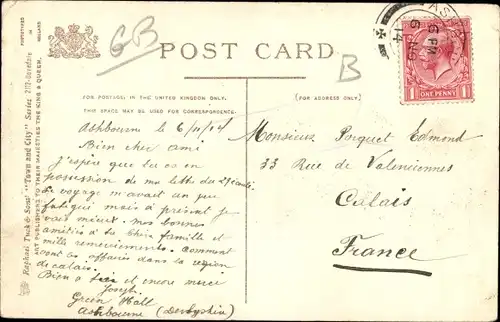 PHOTOTYPED IN HOLLAND.
Raphael Tuck & Sons' "Town and City" Series
ART PUBLISHERS TO THEIR MAJESTIES THE KING & QUEEN.
GB
POST CARD
B
6 PM
6 NO
14
1 ONE PENNY 1
FOR POSTAGE IN THE UNITED KINGDOM ONLY,
THIS SPACE MAY BE USED FOR CORRESPONDENCE
(FOR ADDRESS ONLY)
Ashbourne le 6/11/14
Bien cher ami
J'espère que tu es en
possession de ma lettre du
Le voyage m'avait un peu
fatigué mais à présent je
vais mieux. Mes bonnes
amitiés à ta chère famille et
mille remerciements. Comment
vont les affaires dans la région
de calais.
Bien à toi et encore merci
Joseph
Green Hall
Ashbourne (Derbyshire)
Monsieur Porquet Edmond
33 Rue de Valenciennes
Calais
France